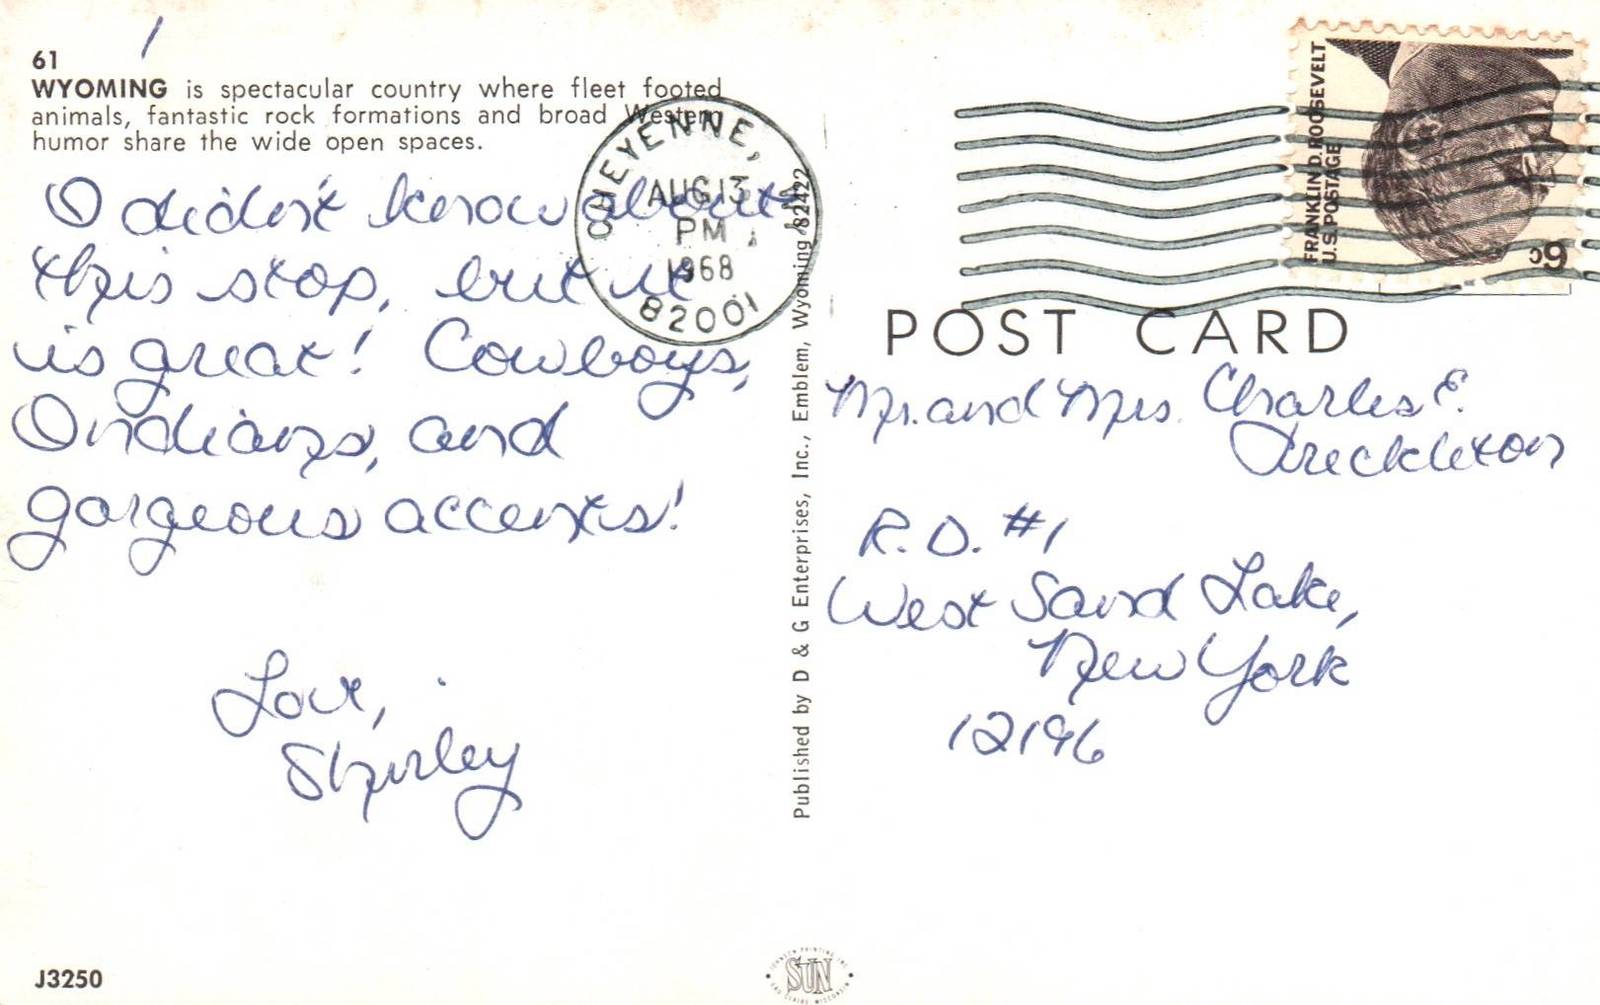 61
WYOMING is spectacular country where fleet footed
animals, fantastic rock formations and broad Western
humor share the wide open spaces.
I didn't know about
this stop, but it
is great! Cowboys,
Indians, and
gorgeous accents!
Love,
Shirley
J3250
CHEYENNE,
AUG 13
PM
1968
82001
Published by D & G Enterprises, Inc., Emblem, Wyoming 82422
FRANKLIN D. ROOSEVELT
U.S. POSTAGE
6c
POST CARD
Mr. and Mrs. Charles E.
Freckleton
R.D. #1
West Sand Lake,
New York
12196
SUN